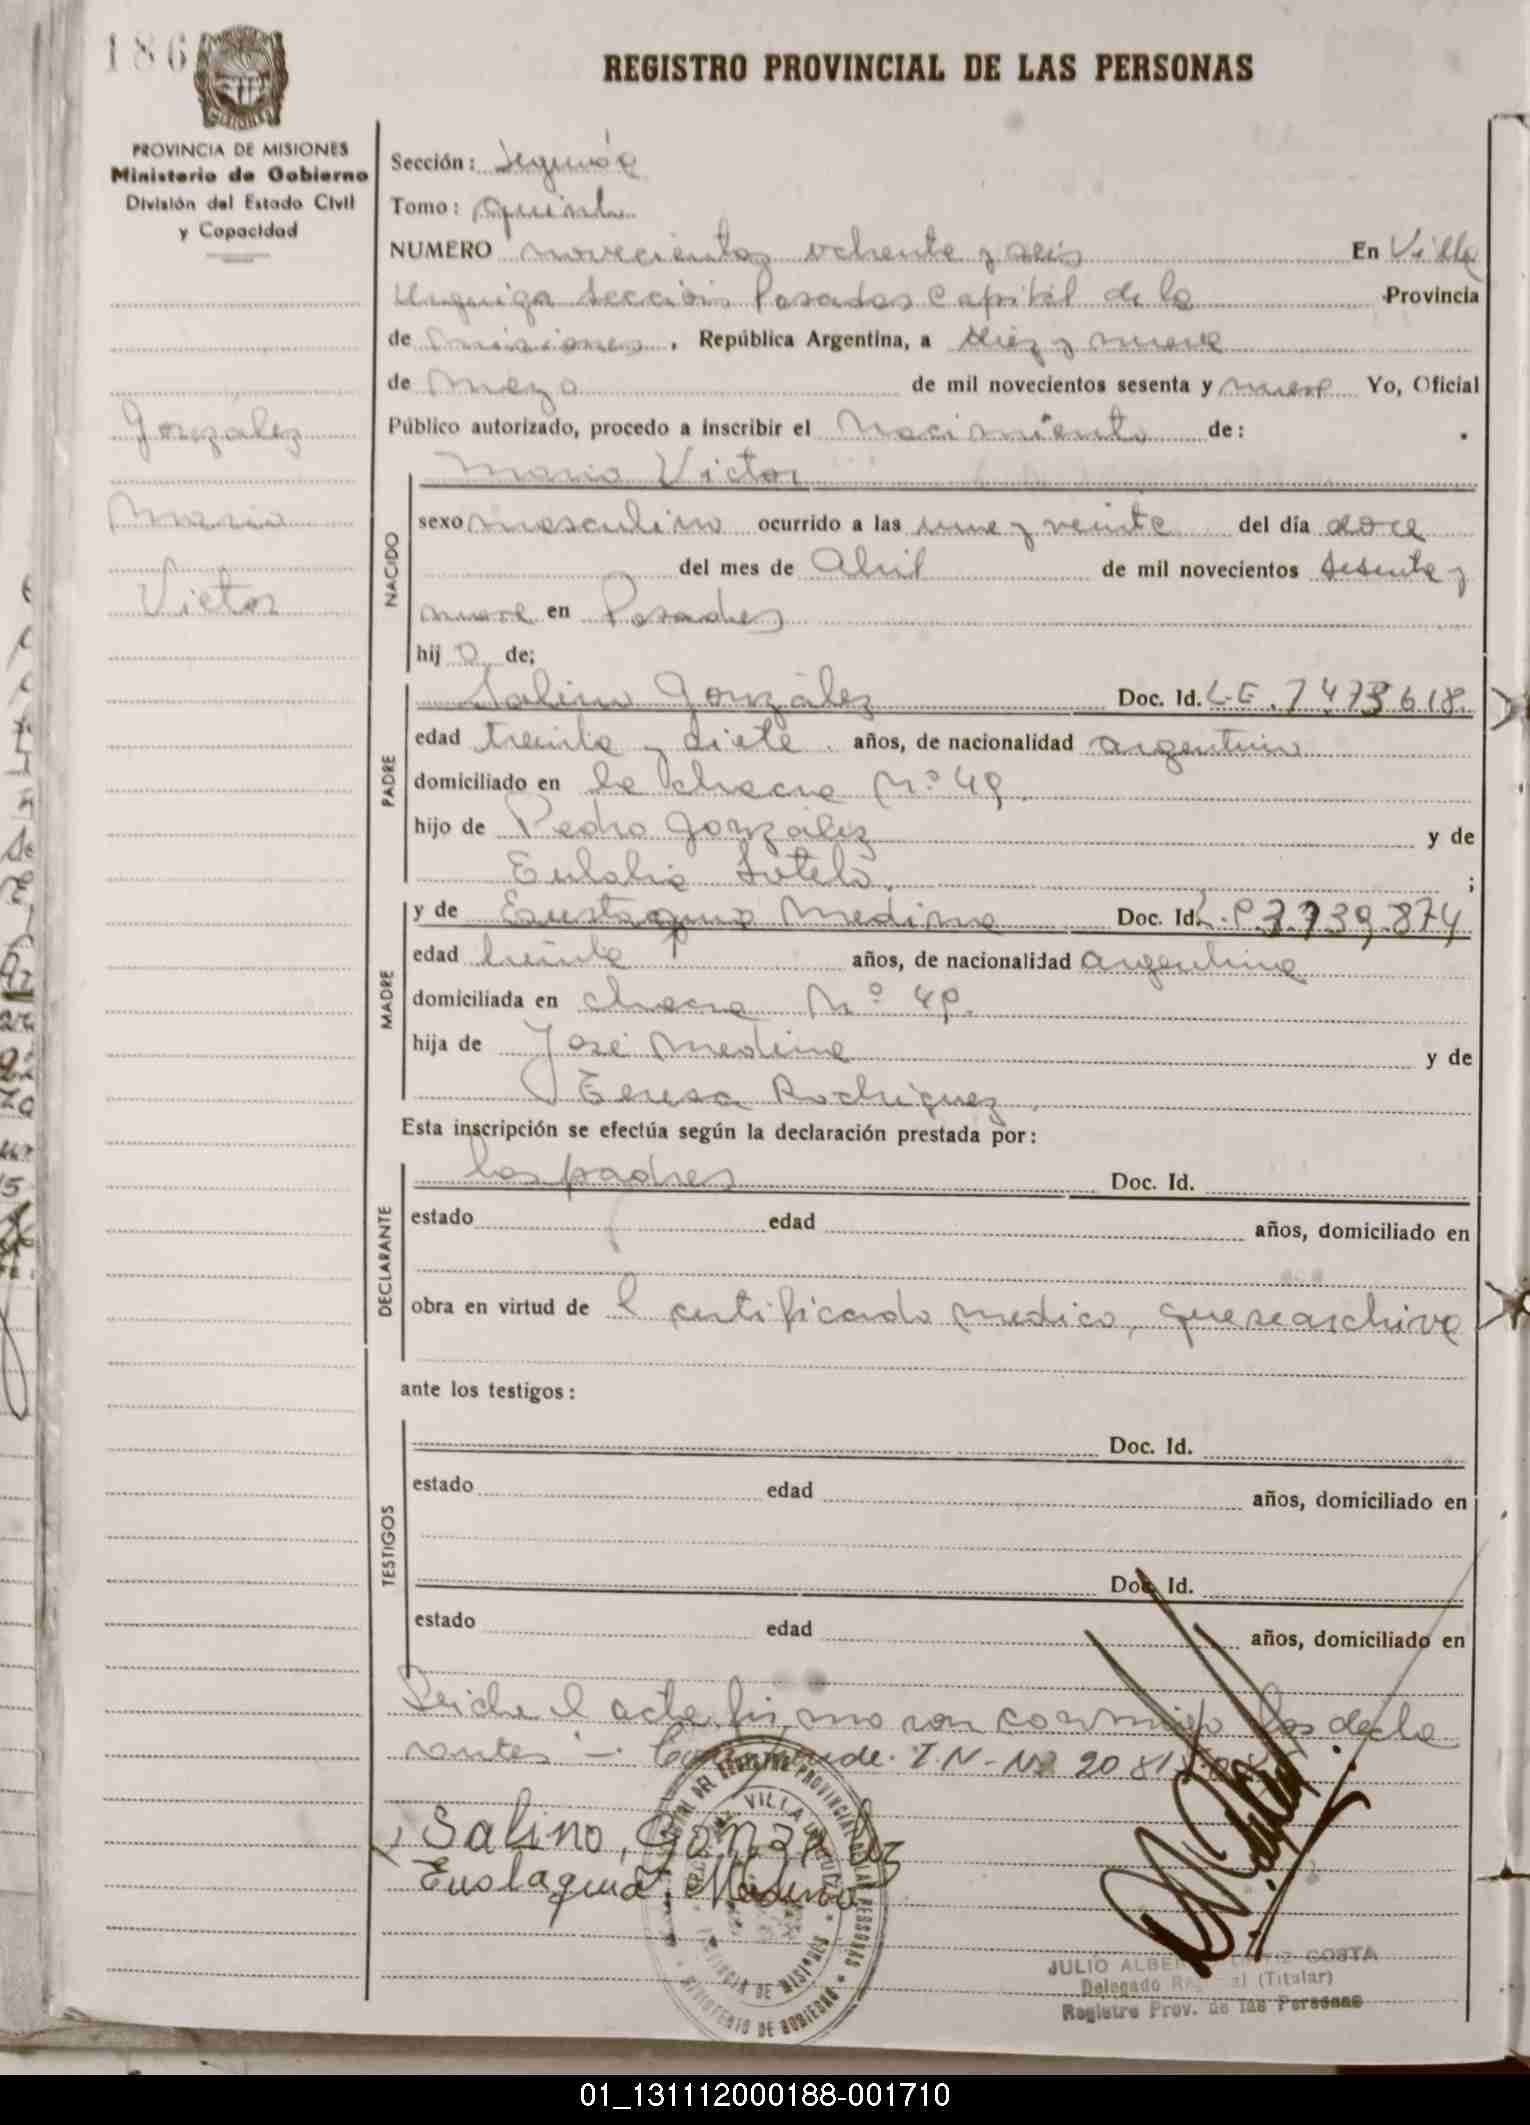 186
REGISTRO PROVINCIAL DE LAS PERSONAS
PROVINCIA DE MISIONES
Ministerio de Gobierno
División del Estado Civil
y Capacidad
González
Mario
Victor
Sección: Segunda
Tomo: Quinto
NUMERO novecientos ochenta y seis En Villa
Urquiza Sección Posadas Capital de la Provincia
de Misiones, República Argentina, a diez y nueve
de Mayo de mil novecientos sesenta y nueve Yo, Oficial
Público autorizado, procedo a inscribir el Nacimiento de:
NACIDO
Mario Victor
sexo masculino ocurrido a las una y veinte del día doce
del mes de Abril de mil novecientos sesenta y
nueve en Posadas
hijo de;
PADRE
Salino González Doc. Id. L.E. 7.473.618.
edad treinta y siete años, de nacionalidad argentino
domiciliado en la chacra Nº 49.
hijo de Pedro González y de
Eulalia Sotelo. ;
MADRE
y de Eustaquia Medina Doc. Id. 739.874
edad treinta años, de nacionalidad argentina
domiciliada en chacra Nº 49.
hija de José Medina y de
Teresa Rodriguez.
Esta inscripción se efectúa según la declaración prestada por:
DECLARANTE
los padres Doc. Id.
estado edad años, domiciliado en
obra en virtud de l certificado medico, que se archiva
ante los testigos:
TESTIGOS
Doc. Id.
estado edad años, domiciliado en
Doc. Id.
estado edad años, domiciliado en
el acta firmo con conmigo los decla
rantes – I.N-Nº 20.81
Salino, González
Eustaquia Medina
REGISTRO PROVINCIAL DE LAS PERSONAS
VILLA URQUIZA
PROVINCIA DE MISIONES
MINISTERIO DE GOBIERNO
JULIO ALBER COSTA
Delegado (Titular)
Registro Prov. de las Personas
01_131112000188-001710